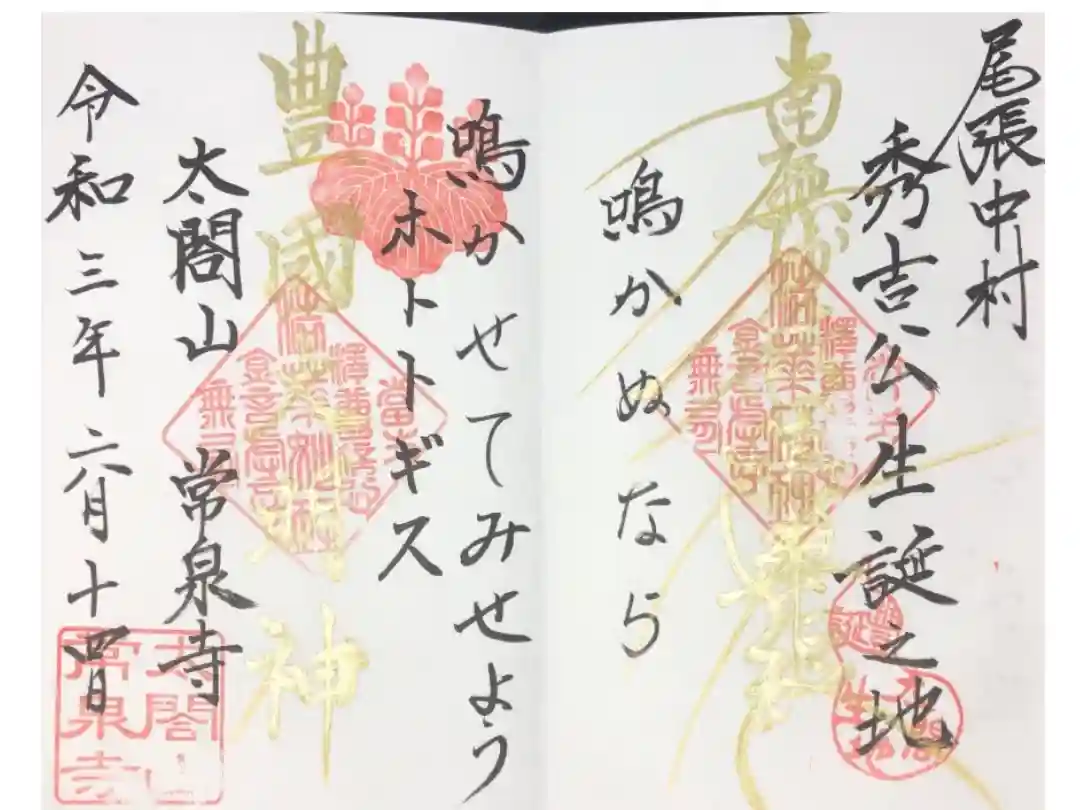 尾張中村
秀吉公生誕之地
南無妙法蓮華経
鳴かぬなら
鳴かせてみせよう
ホトトギス
豊國大明神
太閤山 常泉寺
令和三年六月十四日
太閤山
常泉寺